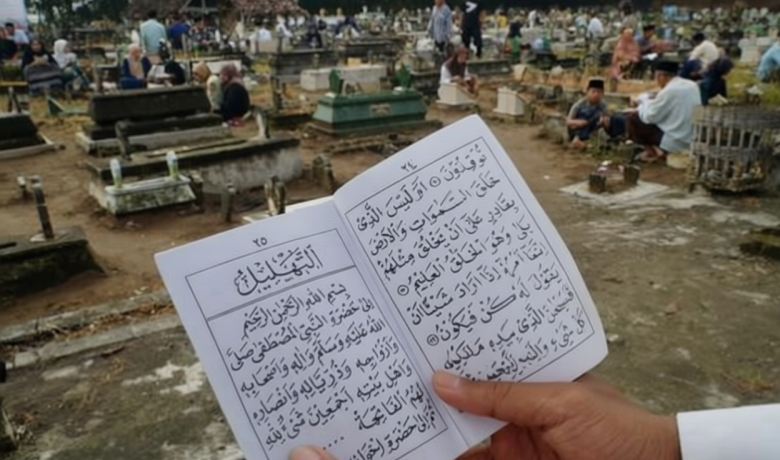 ٢٤
تُوْقِدُوْنَ ۝ اَوَلَيْسَ الَّذِيْ
خَلَقَ السَّمٰوَاتِ وَالْاَرْضَ
بِقَادِرٍ عَلٰى اَنْ يَخْلُقَ مِثْلَهُمْ
بَلٰى وَهُوَ الْخَلَّاقُ الْعَلِيْمُ ۝
اِنَّمَا اَمْرُهُ اِذَا اَرَادَ شَيْئًا اَنْ
يَقُوْلَ لَهُ كُنْ فَيَكُوْنُ ۝
فَسُبْحَانَ الَّذِيْ بِيَدِهِ مَلَكُوْتُ
كُلِّ شَيْءٍ وَاِلَيْهِ تُرْجَعُوْنَ
٢٥
اَلتَّهْلِيْلُ
بِسْمِ اللهِ الرَّحْمٰنِ الرَّحِيْمِ
اِلٰى حَضْرَةِ النَّبِيِّ الْمُصْطَفٰى صَلَّى
اللهُ عَلَيْهِ وَسَلَّمَ وَاٰلِهِ وَاَصْحَابِهِ
وَاَزْوَاجِهِ وَذُرِّيَّاتِهِ وَاَنْصَارِهِ
وَاَهْلِ بَيْتِهِ اَجْمَعِيْنَ شَيْءٌ لِلّٰهِ
لَهُمُ الْفَاتِحَةُ ....
ثُمَّ اِلٰى حَضْرَةِ